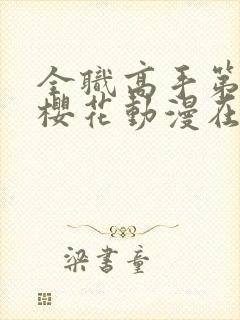 全職高手第
櫻花動漫在
梁書童